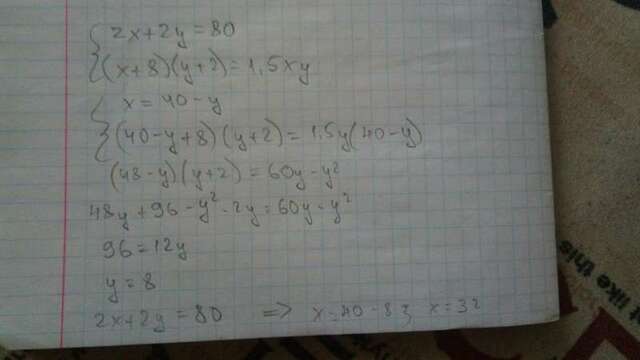 2x+2y=80
(x+8)(y+2)=1,5xy
x=40-y
(40-y+8)(y+2)=1,5y(40-y)
(48-y)(y+2)=60y-y²
48y+96-y²-2y=60y-y²
96=12y
y=8
2x+2y=80 => x=40-8; x=32
st like this